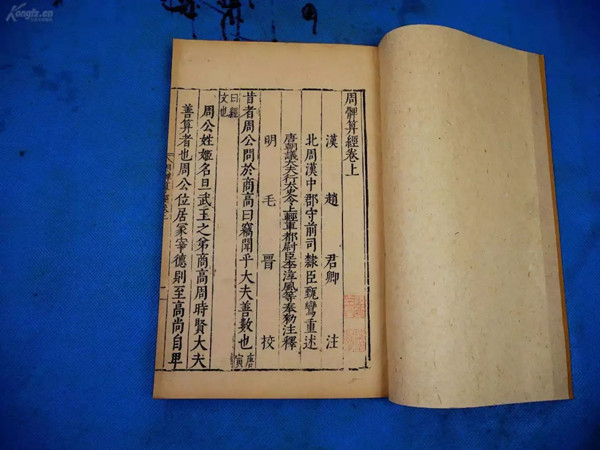 周髀算經卷上
漢 趙 君卿 注
北周漢中郡守前司隸臣甄鸞重述
唐朝議大夫行太史令上輕車都尉臣李淳風等奉勑注釋
明 毛 晉 挍
昔者周公問於商高曰竊聞乎大夫善數也唐寅
曰經文也
周公姓姬名旦武王之弟商高周時賢大夫
善算者也周公位居冢宰德則至高尚自卑
Kongfz.com